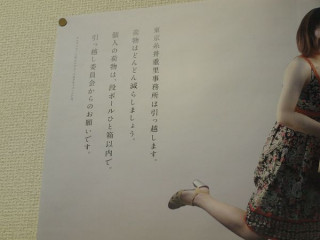 東京糸井重里事務所は引っ越します。
荷物はどんどん減らしましょう。
個人の荷物は、段ボールひと箱以内で。
引っ越し委員会からのお願いです。